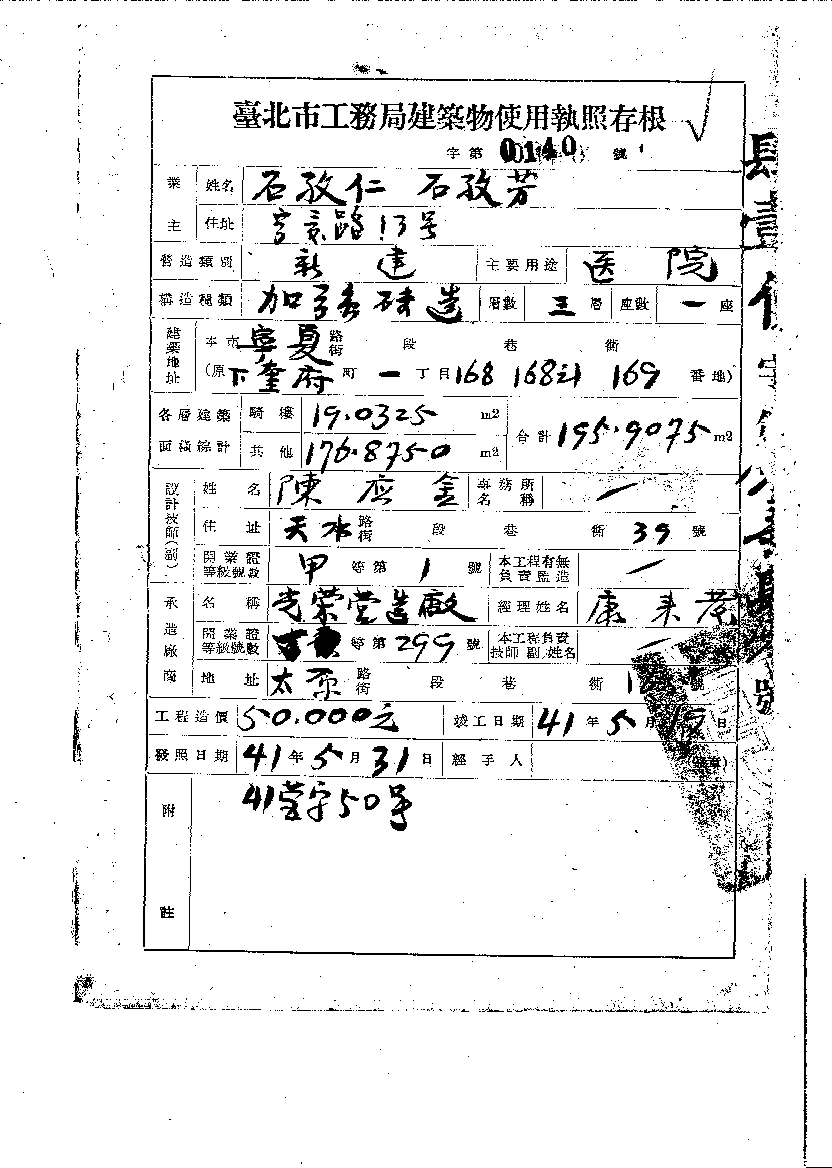 臺北市工務局建築物使用執照存根
字第 00140 號
業主 姓名 石孜仁 石孜芳
住址 寧夏路13号
營造類別 新建 主要用途 医院
構造種類 加强香磚造 層數 三層 座數 一座
建築地址 本市 寧夏 路街 段 巷 衖
(原 下奎府 町 一 丁目 168 168之1 169 番地)
各層建築面積綜計 騎樓 19.0325 m2
其他 176.8750 m2 合計 195.9075 m2
設計技師(副) 姓名 陳应金 事務所名稱 /
住址 天水 路街 段 巷 衖 39 號
開業證等級號數 甲 等第 1 號 本工程有無負責監造 /
承造廠商 名稱 光榮營造廠 經理姓名 康来
開業證等級號數 等第 299 號 本工程負責技師副姓名 /
地址 太原 路街 段 巷 衖 號
工程造價 50.000元 竣工日期 41年5月 日
發照日期 41年5月31日 經手人
附註 41营字50号
肆壹使字第
號